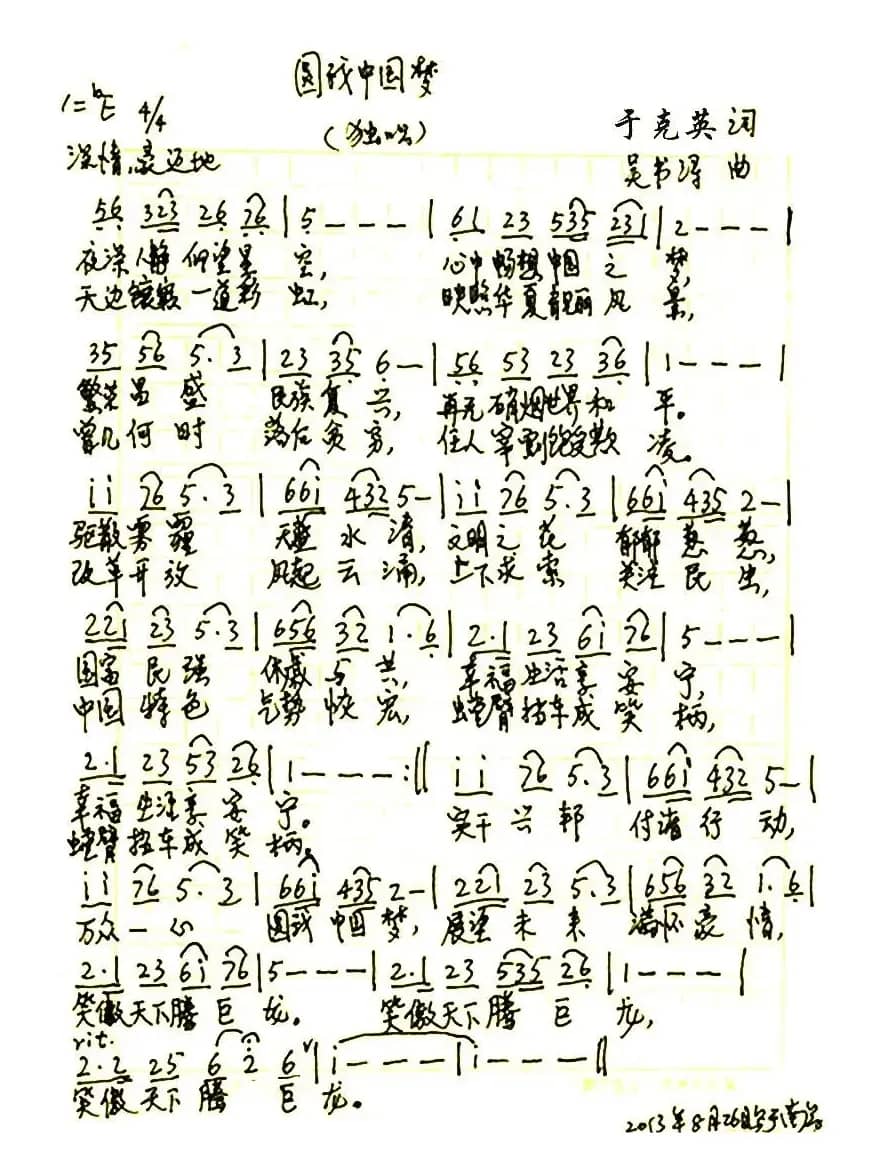 圆我中国梦
(独唱)
1=bE 4/4
于克英 词
深情、豪迈地
曲
56 323 26 76 | 5 - - - | 61 23 535 231 | 2 - - - |
夜深人静仰望星空, 心中畅想中国之梦,
天边镶嵌一道彩虹, 映照华夏靓丽风景,
35 56 5.3 | 23 35 6 - | 56 53 23 36 | 1 - - - |
繁荣昌盛民族复兴, 再无硝烟世界和平。
曾几何时落后贫穷, 任人宰割饱受欺凌。
ii 76 5.3 | 66i 432 5 - | ii 76 5.3 | 66i 435 2 - |
驱散雾霾天蓝水清, 文明之花郁郁葱葱,
改革开放风起云涌, 上下求索关注民生,
22i 23 5.3 | 656 32 1.6 | 2.1 23 6i 76 | 5 - - - |
国富民强休戚与共, 幸福生活享安宁,
中国特色气势恢宏, 螳臂挡车成笑柄,
2.1 23 53 26 | 1 - - - :|| ii 76 5.3 | 66i 432 5 - |
幸福生活享安宁。 实干兴邦付诸行动,
螳臂挡车成笑柄。
ii 76 5.3 | 66i 435 2 - | 221 23 5.3 | 656 32 1.6 |
万众一心圆我中国梦, 展望未来满怀豪情,
2.1 23 6i 76 | 5 - - - | 2.1 23 535 26 | 1 - - - |
笑傲天下腾巨龙。 笑傲天下腾巨龙,
rit.
2.2 25 6 2 6 v | i - - - | i - - - ||
笑傲天下腾巨龙。
2013年8月26日